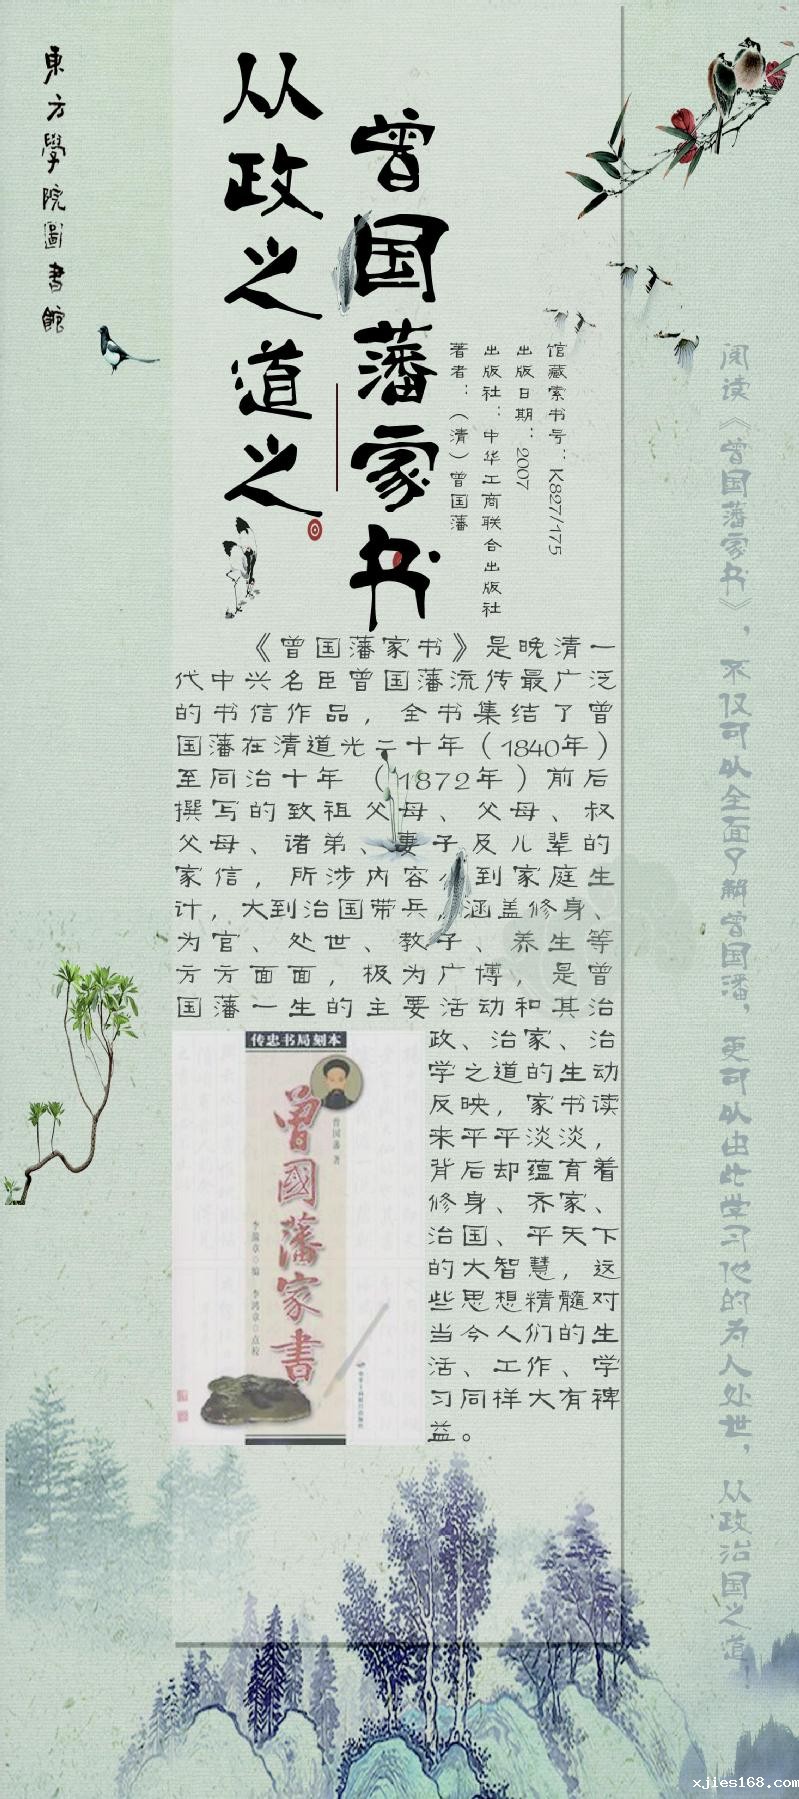 東方學院圖書館
从政之道之
曾国藩家书
著者：（清）曾国藩
出版社：中华工商联合出版社
出版日期：2007
馆藏索书号：K827/175
《曾国藩家书》是晚清一
代中兴名臣曾国藩流传最广泛
的书信作品，全书集结了曾
国藩在清道光二十年（1840年）
至同治十年（1872年）前后
撰写的致祖父母、父母、叔
父母、诸弟、妻子及儿辈的
家信，所涉内容小到家庭生
计，大到治国带兵，涵盖修身、
为官、处世、教子、养生等
方方面面，极为广博，是曾
国藩一生的主要活动和其治
政、治家、治
学之道的生动
反映，家书读
来平平淡淡，
背后却蕴育着
修身、齐家、
治国、平天下
的大智慧，这
些思想精髓对
当今人们的生
活、工作、学
习同样大有裨
益。
传忠书局刻本
曾國藩家書
曾国藩 著
李瀚章 编 李鸿章 点校
阅读《曾国藩家书》，不仅可以全面了解曾国藩，更可以由此学习他的为人处世，从政治国之道！
xjies168.com